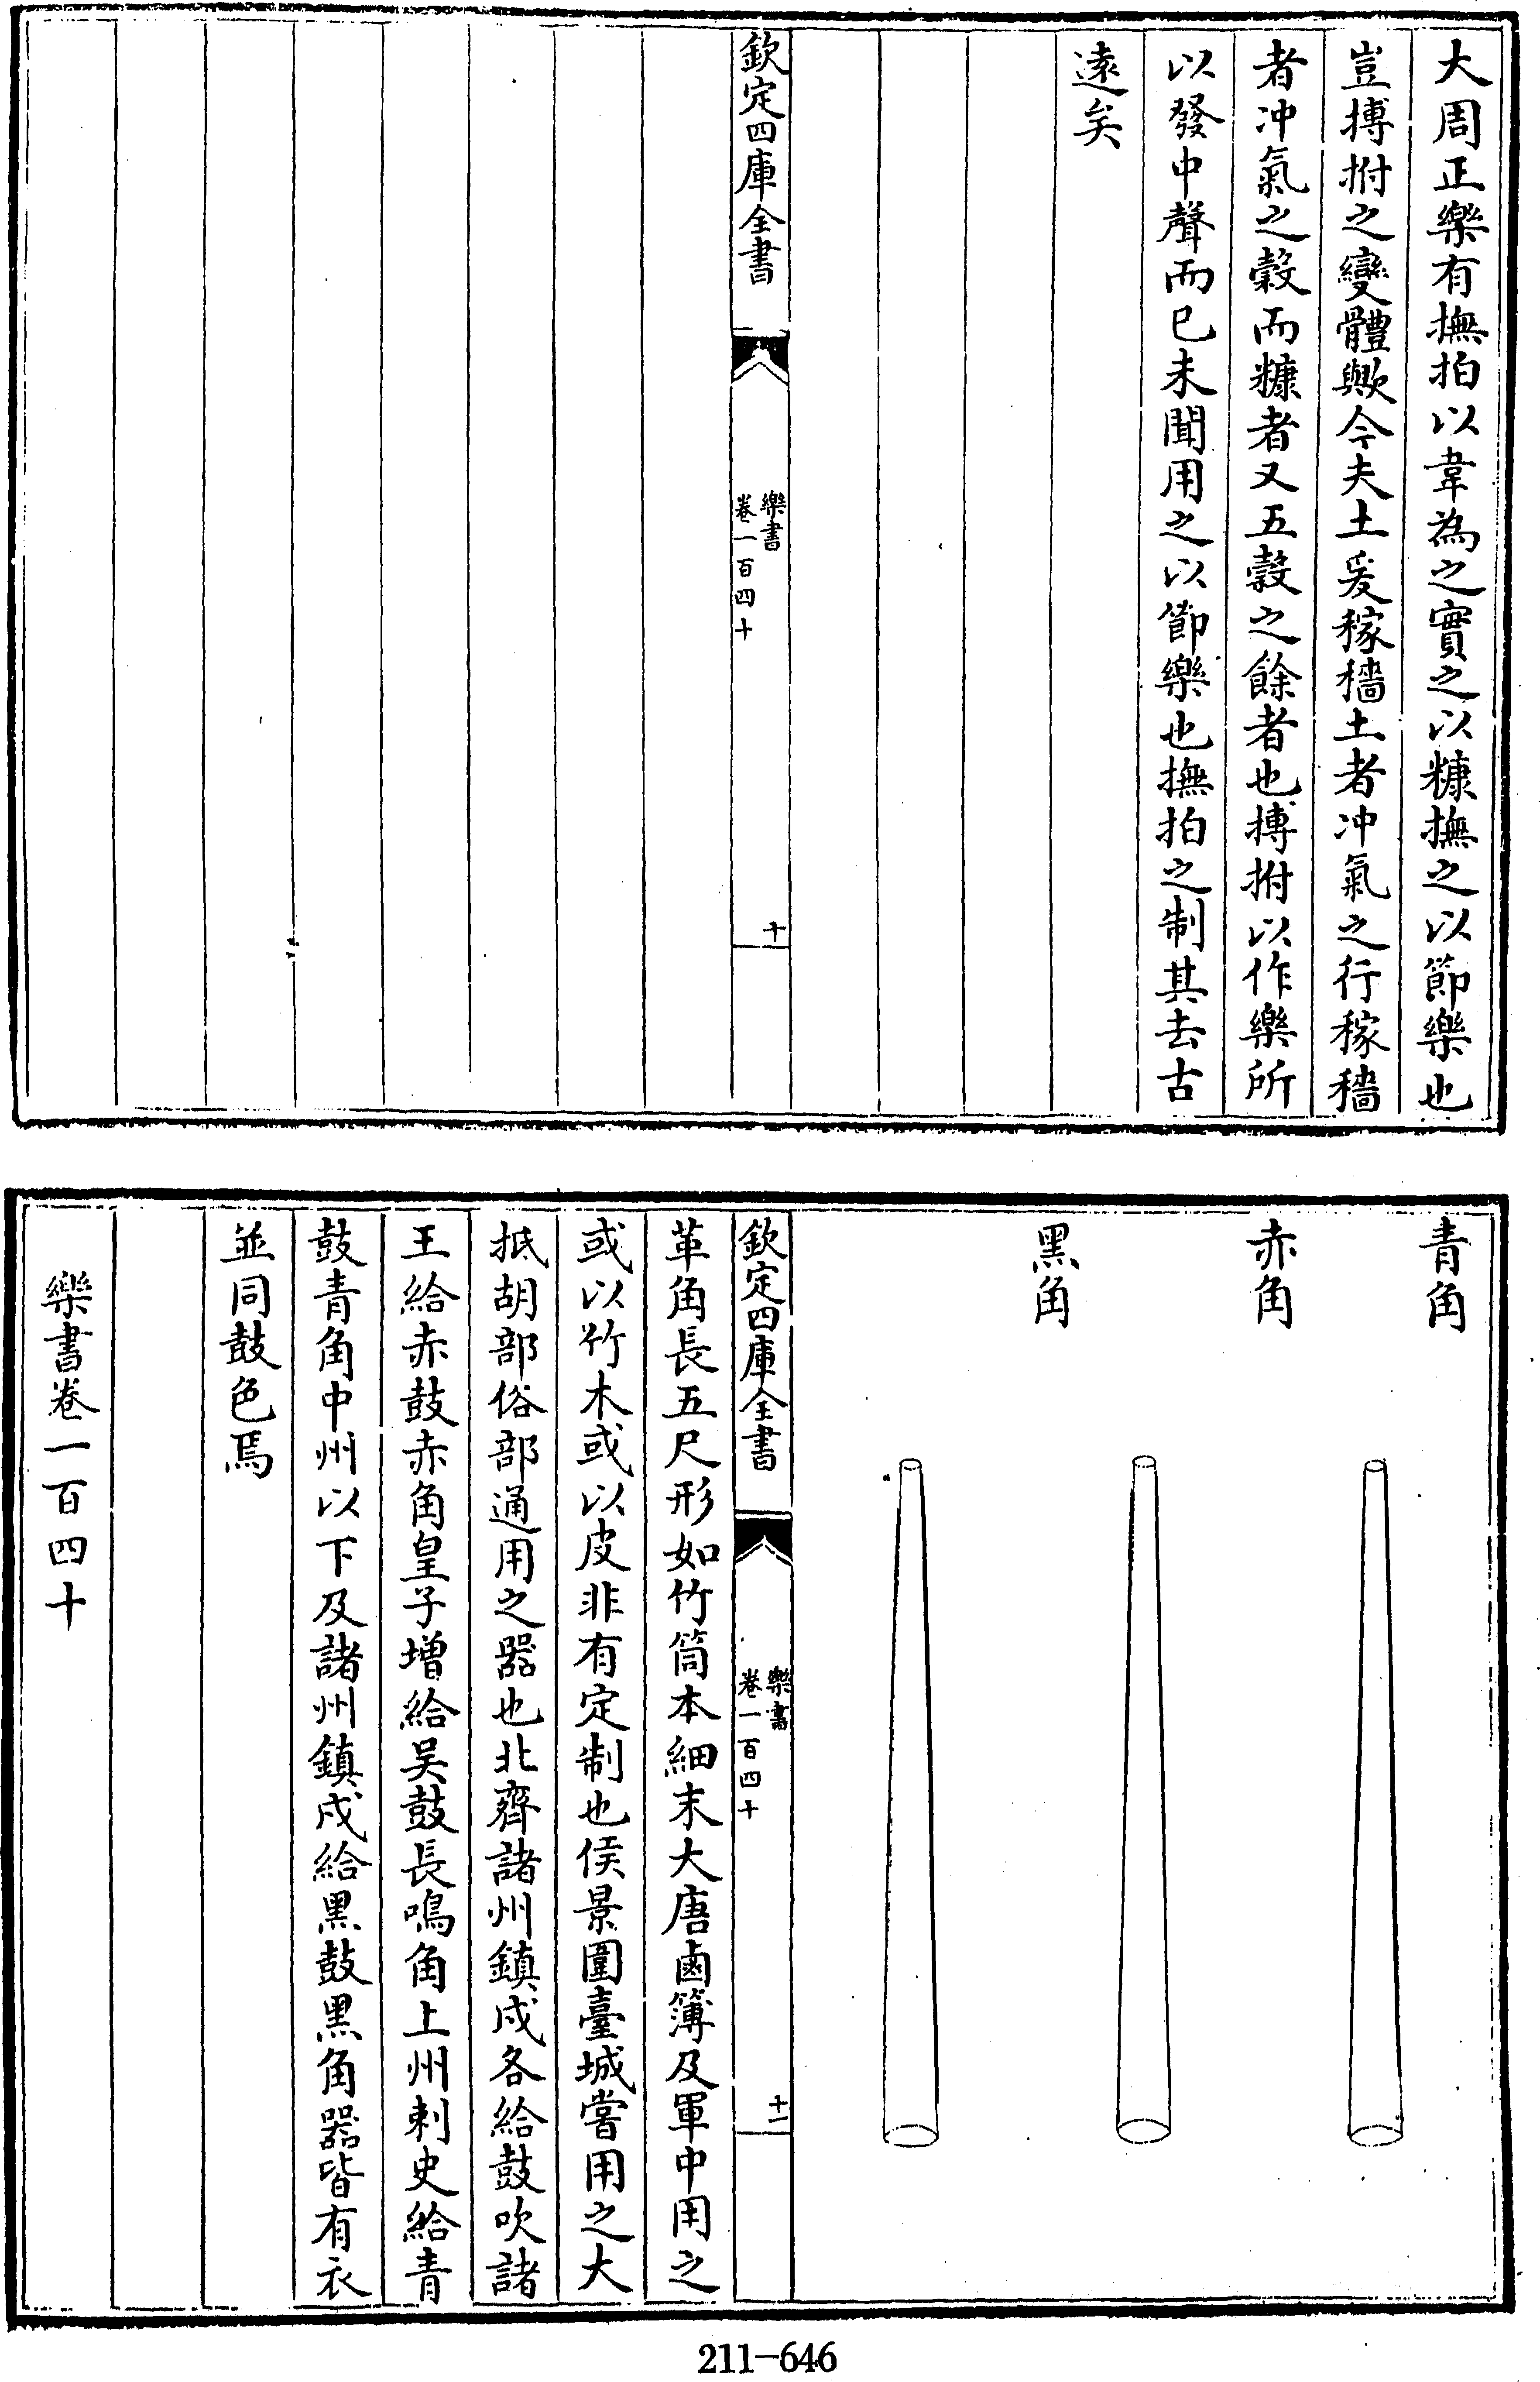 大周正樂有撫拍以韋為之實之以糠撫之以節樂也
豈搏拊之變體歟今夫土爰稼穡土者冲氣之行稼穡
者冲氣之穀而糠者又五穀之餘者也搏拊以作樂所
以發中聲而已未聞用之以節樂也撫拍之制其去古
遠矣
欽定四庫全書
樂書
卷一百四十
十
青角
赤角
黑角
欽定四庫全書
樂書
卷一百四十
十一
革角長五尺形如竹筒本細末大唐鹵簿及軍中用之
或以竹木或以皮非有定制也侯景圍臺城嘗用之大
抵胡部俗部通用之器也北齊諸州鎮戍各給鼓吹諸
王給赤鼓赤角皇子增給吳鼓長鳴角上州刺史給青
鼓青角中州以下及諸州鎮戍給黑鼓黑角器皆有衣
並同鼓色焉
樂書卷一百四十
211-646